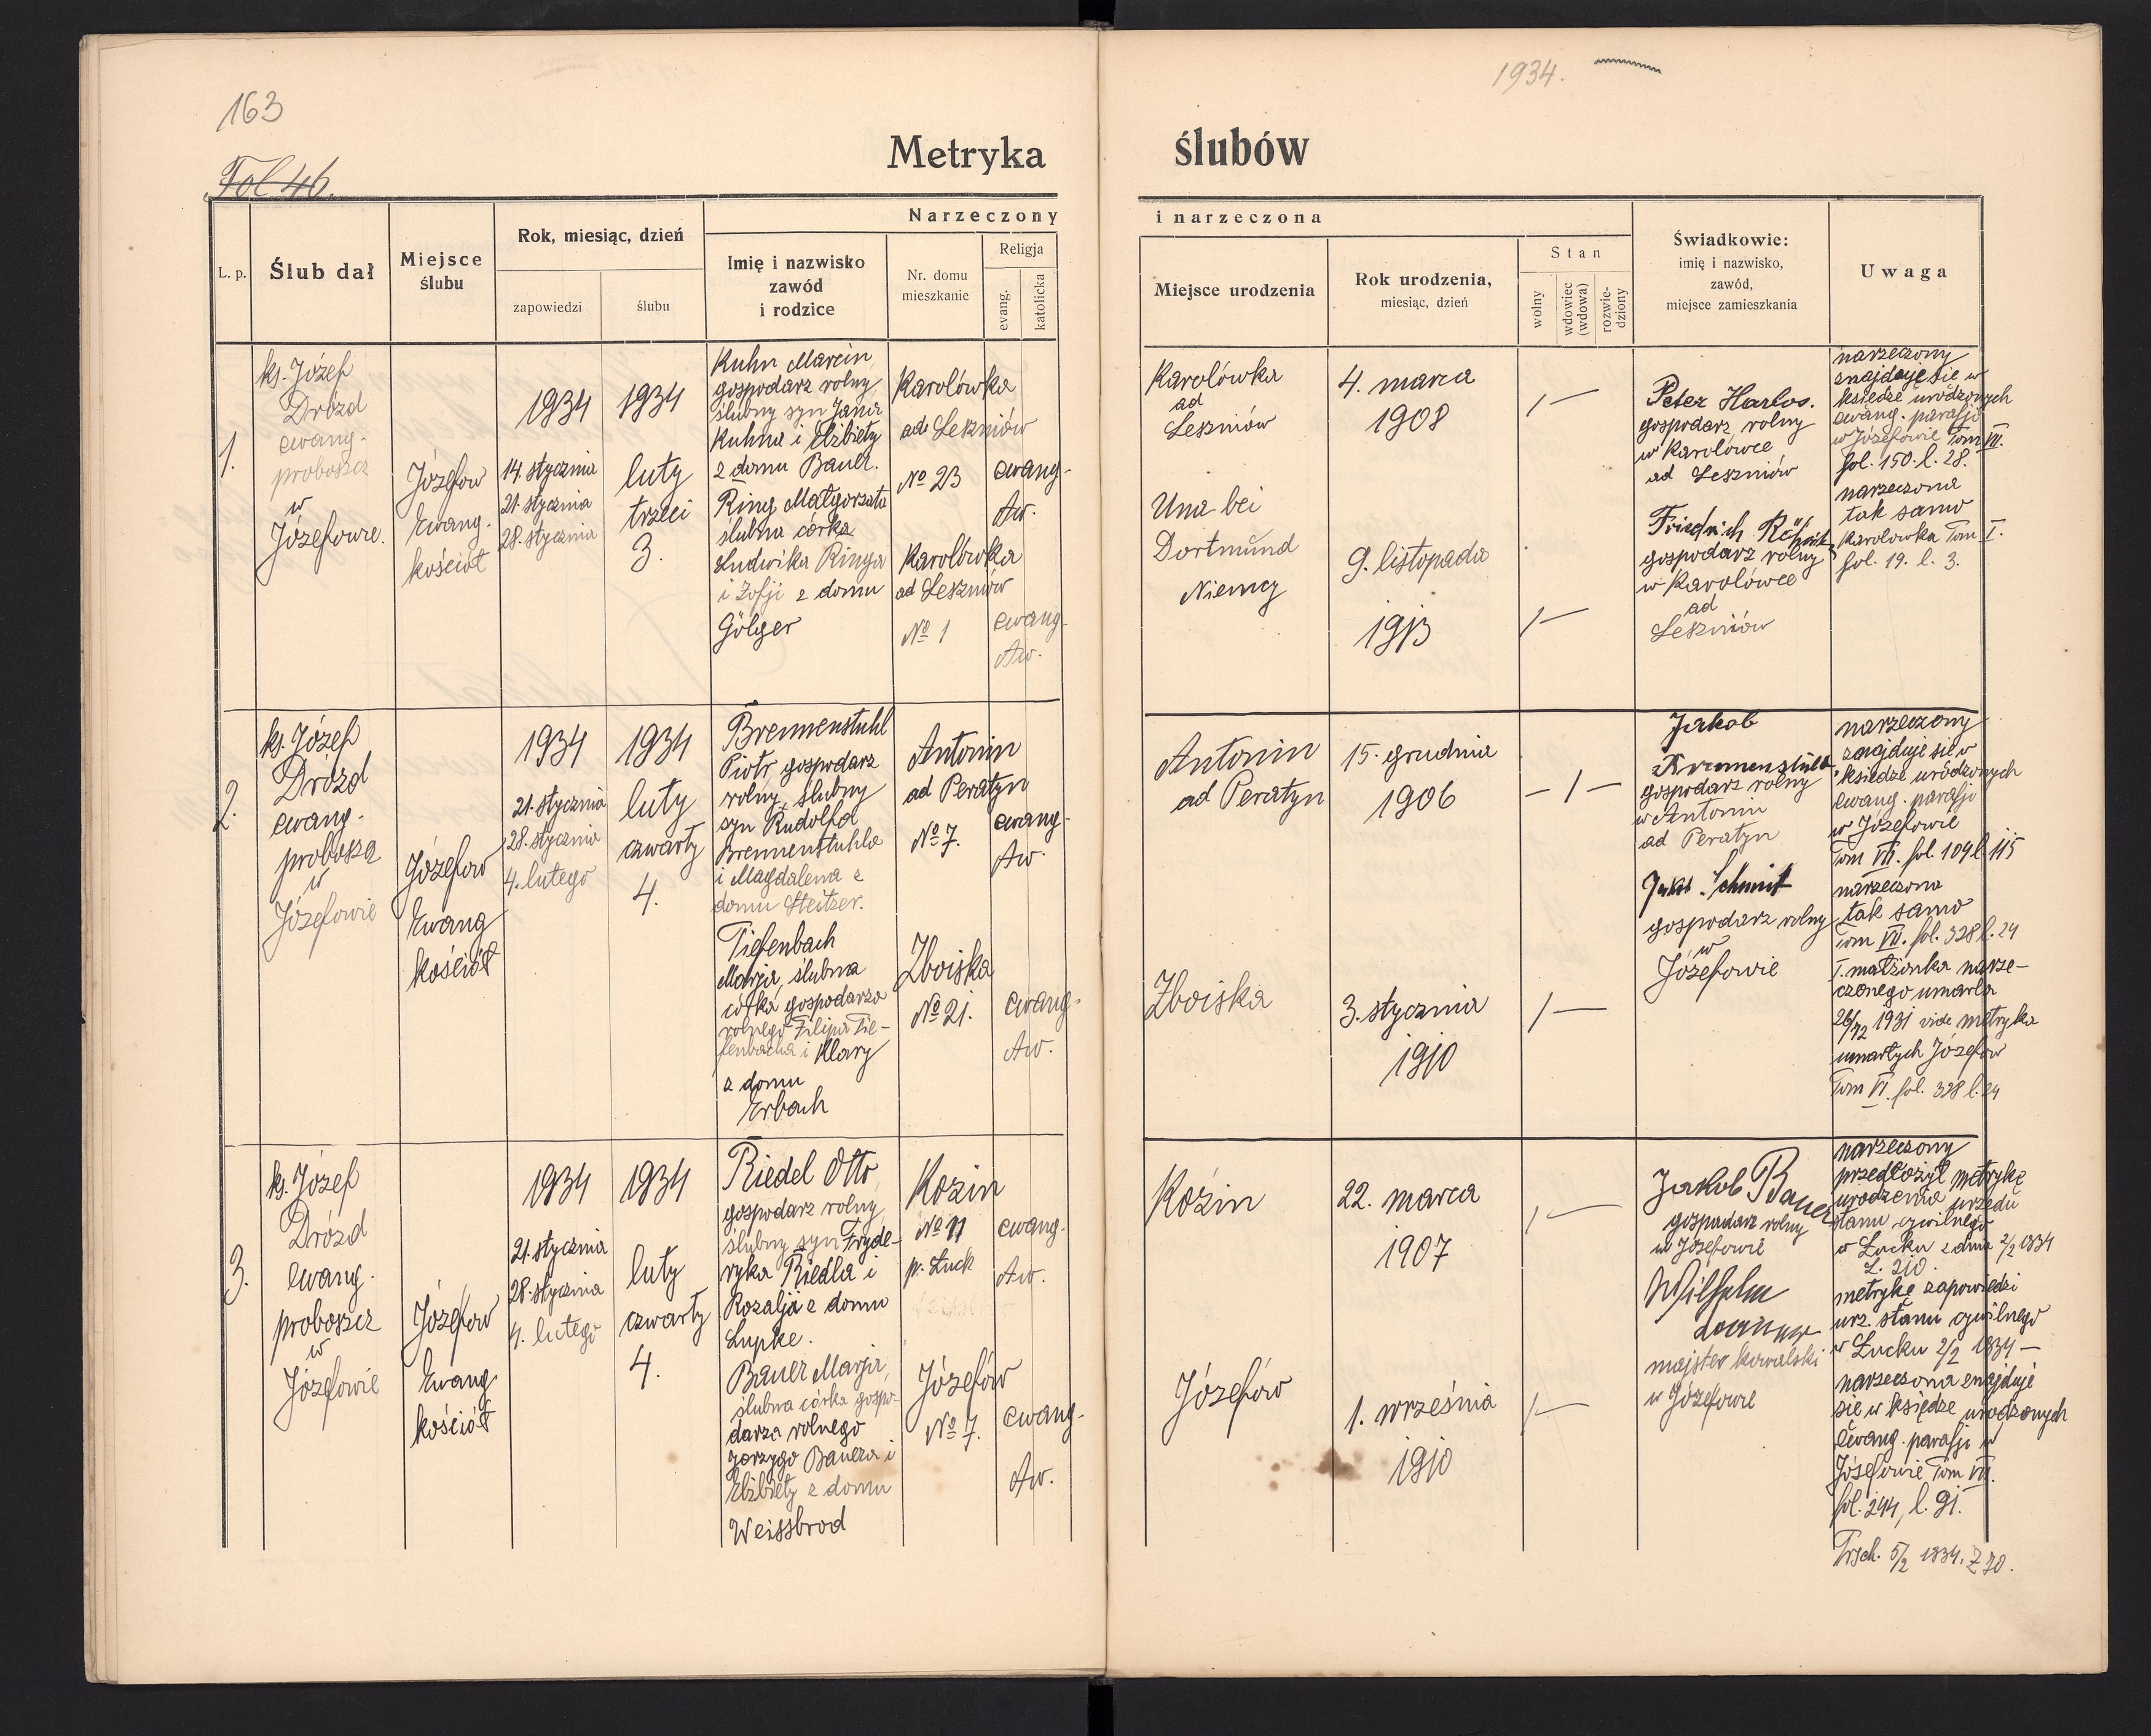 163
1934.
Fol 46.
Metryka ślubów
L. p.
Ślub dał
Miejsce
ślubu
Rok, miesiąc, dzień
zapowiedzi
ślubu
Narzeczony i narzeczona
Imię i nazwisko
zawód
i rodzice
Nr. domu
mieszkanie
Religja
evang.
katolicka
Miejsce urodzenia
Rok urodzenia,
miesiąc, dzień
Stan
wolny
wdowiec
(wdowa)
rozwie-
dziony
Świadkowie:
imię i nazwisko,
zawód,
miejsce zamieszkania
Uwaga
1.
ks. Józef
Drozd
ewang.
proboszcz
w
Józefowie.
Józefow
Ewang.
kościoł
1934
14. stycznia
21. stycznia
28. stycznia
1934
luty
trzeci
3.
Kuhn Marcin,
gospodarz rolny,
ślubny syn Jana
Kuhna i Elżbiety
z domu Bauer.
Ring Małgorzata
ślubna córka
Ludwika Ringa
i Zofji z domu
Gölger
Karolówka
ad Leszniów
No 23
Karolówka
ad Leszniów
No 1
ewang.
Aw.
ewang.
Aw.
Karolówka
ad
Leszniów
Una bei
Dortmund
Niemcy
4. marca
1908
9. listopada
1913
1 —
1 —
Peter Harlos.
gospodarz rolny
w Karolówce
ad Leszniów
Friedrich
gospodarz rolny
w Karolówce
ad
Leszniów
narzeczony
znajduje sie w
ksiedze urodzonych
ewang. parafji
w Józefowie Tom VII.
fol. 150. l. 28.
narzeczona
tak samo
Karolowka Tom I.
fol. 19. l. 3.
2.
ks. Józef
Drozd
ewang.
proboszcz
w
Józefowie
Józefow
Ewang
kościoł
1934
21. stycznia
28. stycznia
4. lutego
1934
luty
czwarty
4.
Brennenstuhl
Piotr, gospodarz
rolny, ślubny
syn Rudolfa
Brennenstuhla
i Magdalena z
domu Steitzer.
Tiefenbach
Marja, ślubna
córka gospodarza
rolnego Filipa Tie-
fenbacha i Klary
z domu
Erbach
Antonin
ad Peratyn
No 7.
Zboiska
No 21.
ewang.
Aw.
ewang.
Aw.
Antonin
ad Peratyn
Zboiska
15. grudnia
1906
3. stycznia
1910
— 1 —
1 —
Jakob
gospodarz rolny
w Antonin
ad Peratyn
Jakob Schmit
gospodarz rolny
w
Józefowie
narzeczony
znajduje sie w
ksiedze urodzonych
ewang. parafji
w Józefowie
Tom VII. fol. 109 l. 115
narzeczona
tak samo
Tom VII. fol. 328 l. 24
I. małżonka narze-
czonego umarła
26/12 1931 vide metryka
umarłych Józefow
Tom VI. fol. 328 l. 24
3.
ks. Józef
Drozd
ewang.
proboszcz
w
Józefowie
Józefow
Ewang
kościoł
1934
21. stycznia
28. stycznia
4. lutego
1934
luty
czwarty
4.
Riedel Otto,
gospodarz rolny,
ślubny syn Fryde-
ryka Riedla i
Rozalja z domu
Lupke.
Bauer Marja,
ślubna córka gospo-
darza rolnego
Jorzygo Bauera i
Elżbiety z domu
Weissbrod
Kozin
No 11
p. Łuck
Józefów
No 7.
ewang.
Aw.
ewang.
Aw.
Kozin
Józefow
22. marca
1907
1. września
1910
1 —
1 —
Jakob Bauer
gospodarz rolny
w Józefowie
Wilhelm
majster kowalski
w Józefowie
narzeczony
przedłożył metrykę
urodzenia urzedu
stanu cywilnego
w Łucku z dnia 2/2 1934
L. 210.
metrykę zapowiedzi
urz. stanu cywilnego
w Łucku 2/2 1934 —
narzeczona znajduje
sie w księdze urodzonych
Ewang. parafji w
Józefowie Tom VII.
fol. 244, l. 91.
Trsch. 5/2 1934. Z 70.